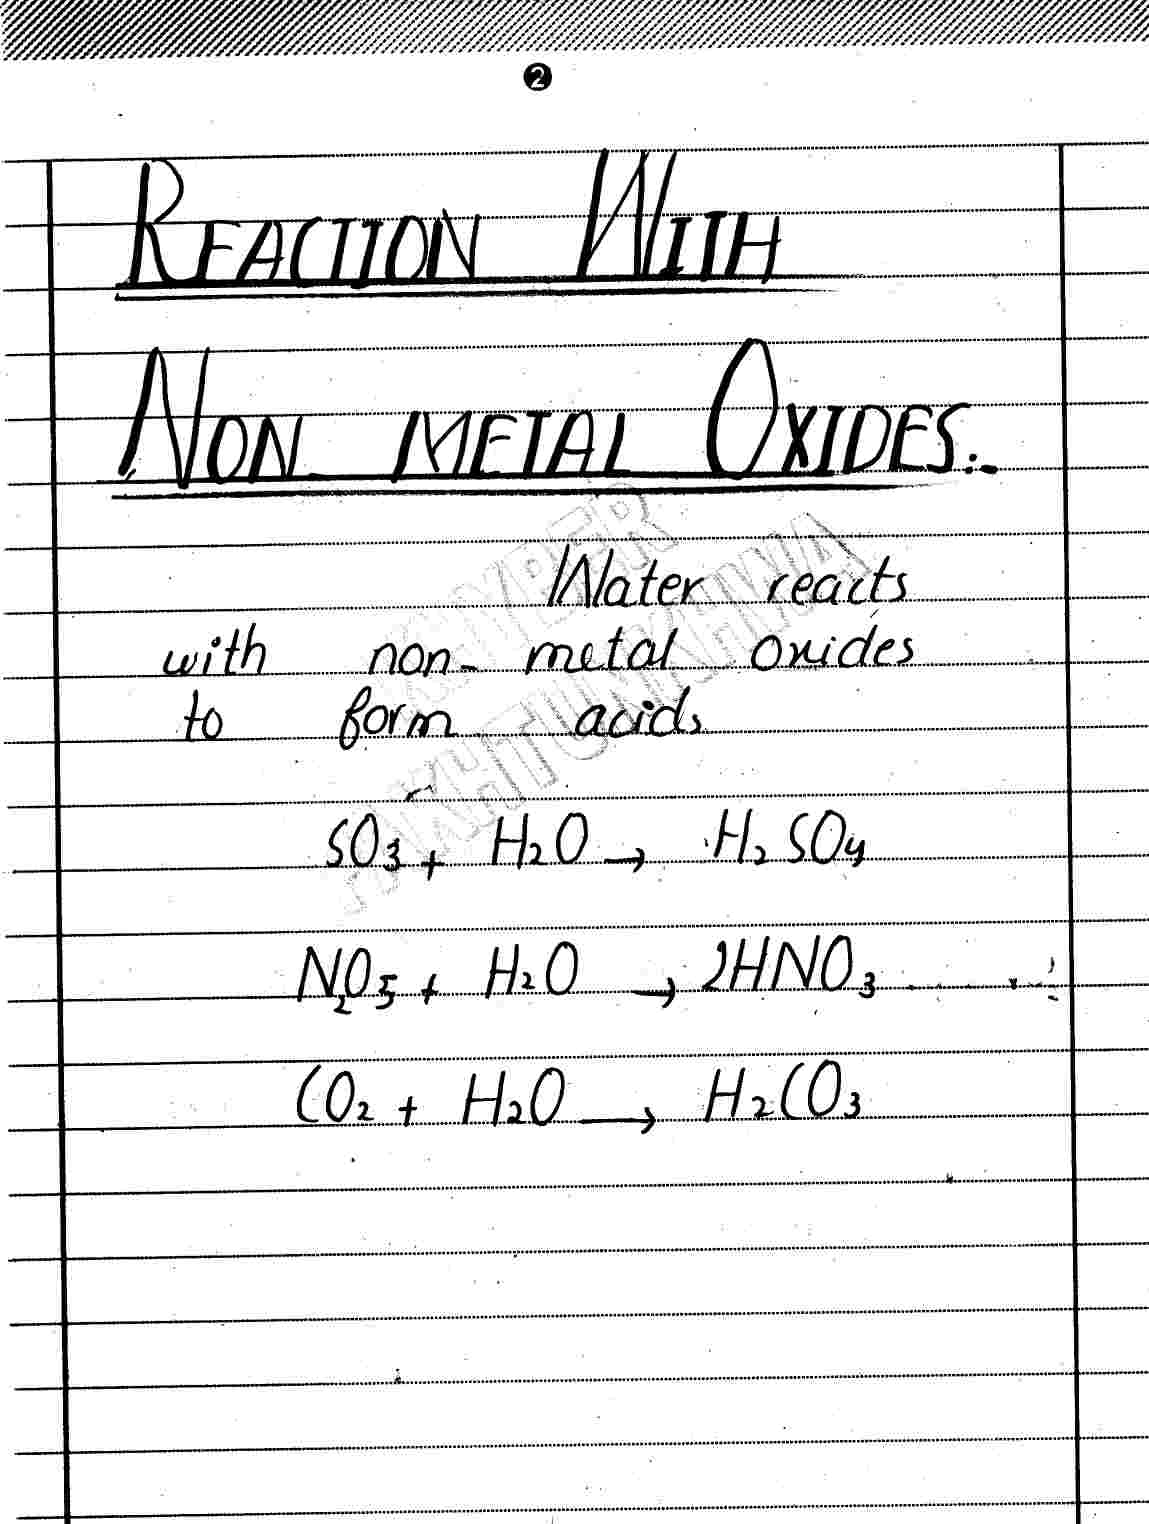 2
REACTION WITH
NON METAL OXIDES:-
Water reacts
with non-metal oxides
to form acids
SO3 + H2O → H2SO4
N2O5 + H2O → 2HNO3
CO2 + H2O → H2CO3
KHYBER
PAKHTUNKHWA